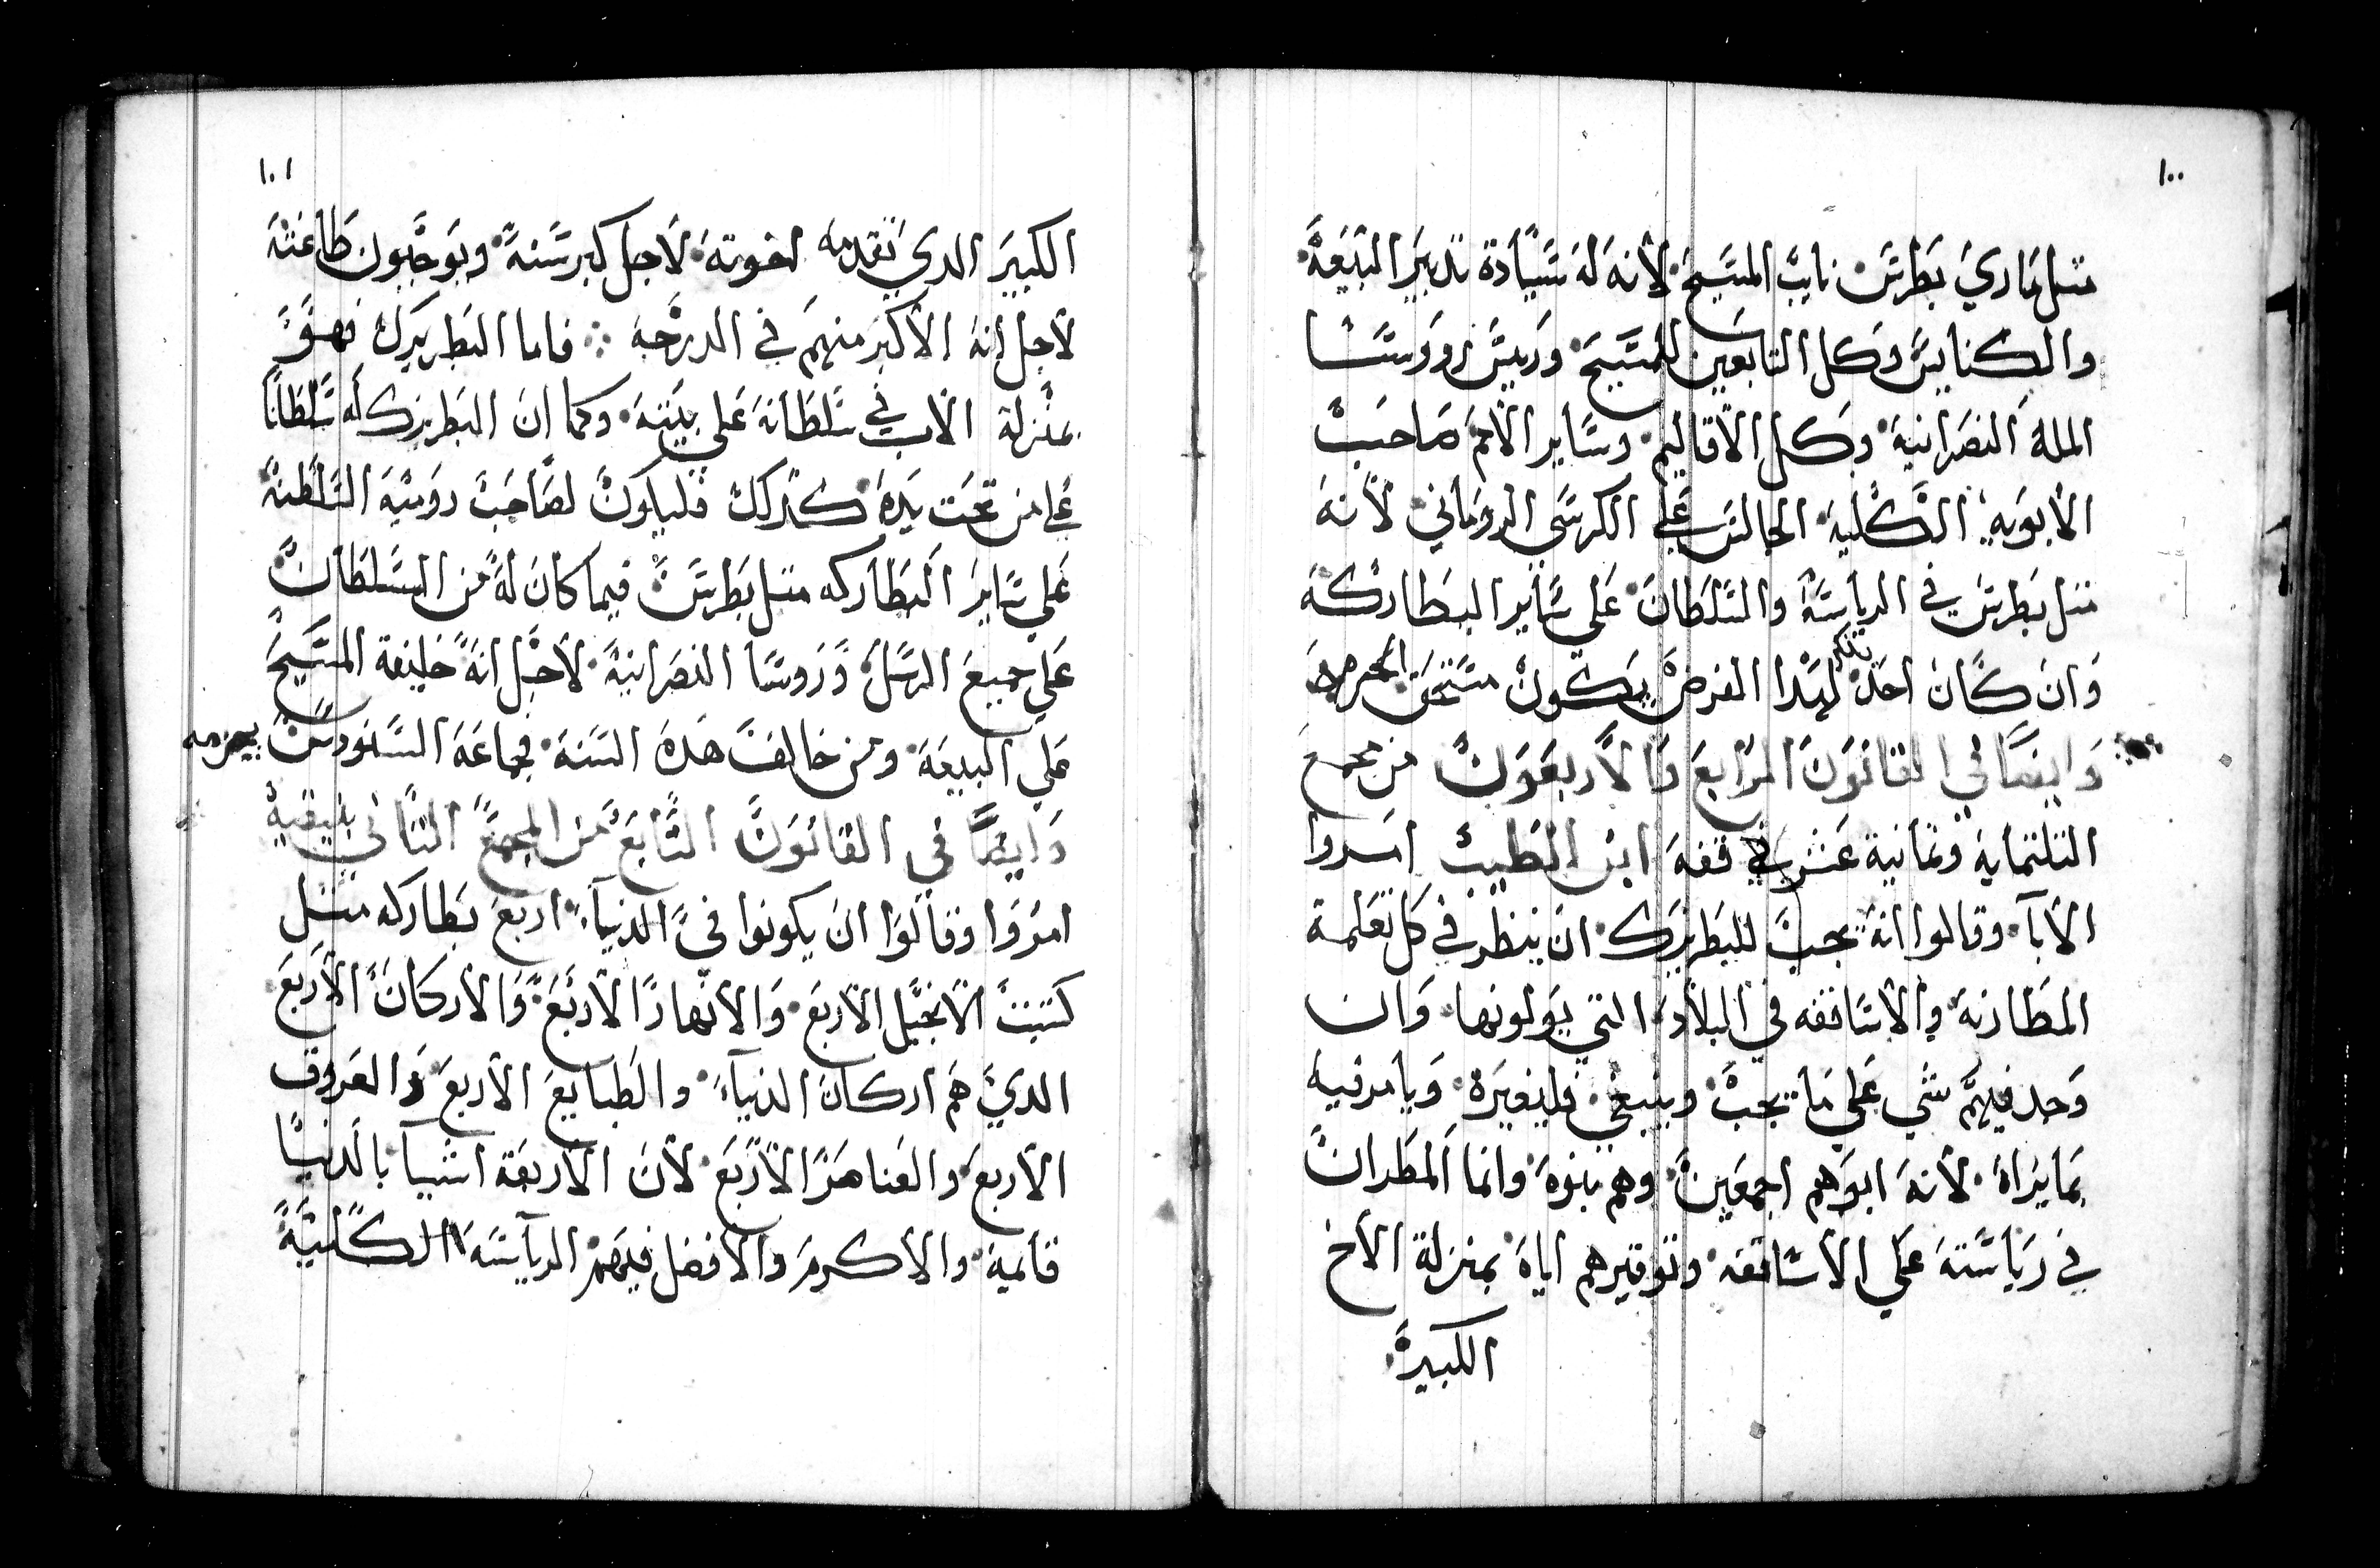 ١٠٠
متل ماري بطرس نايب المسيح لانه له سيادة تدبير البيعة
والكنايس وكل التابعين للمسيح وريس روسا
الملة النصرانية وكل الاقاليم وساير الامم صاحب
الابويه الكلية الجالس علي الكرسي الروماني لانه
متل بطرس في الرياسة والسلطان علي ساير البطاركة
وان كان احد ينكر لهدا الفرض يكون مستحق الحرم
وايضا في القانون الرابع والاربعون من مجمع
التلتماية وتمانية عشر في فقه ابن الطيب امروا
الابآ وقالوا انه يجب للبطريرك ان ينظر في كل تعلمة
المطارنة والاساقفه في البلاد التي يولونها وان
وجد فيهم شي علي ما يجب وينبغي فليغيره ويامر فيه
بما يراه لانه ابوهم اجمعين وهم بنوه وانما المطران
في رياسته علي الاساقفه وتوقيرهم اياه بمنزلة الاخ
الكبير
١٠١
الكبير الدي تقدمه اخوته لاجل كبر سنه ويوجبون طاعته
لاجل انه الاكبر منهم في الدرجة فاما البطريرك فهو
بمنزلة الاب في سلطانه علي بيته وكما ان البطريرك له سلطانا
علي من تحت يده كدلك فليكون لصاحب رومية السلطنة
علي ساير البطاركه متل بطرس فيما كان له من السلطان
علي جميع الرسل وروسا النصرانية لاجل انه خليفة المسيح
علي البيعة ومن خالف هده السنة فجماعة السنودس يحرمه
وايضا في القانون السابع من المجمع التاني بنيقية
امروا وقالوا ان يكونوا في الدنياء اربع بطاركه متل
كتبت الانجيل الاربع والانهار الاربع والاركان الاربع
الدي هم اركان الدنياء والطبايع الاربع والعروق
الاربع والعناصر الاربع لان الاربعة اشيآ بالدنيا
قايمة والاكرم والافضل فيهم الرياسة الكلية